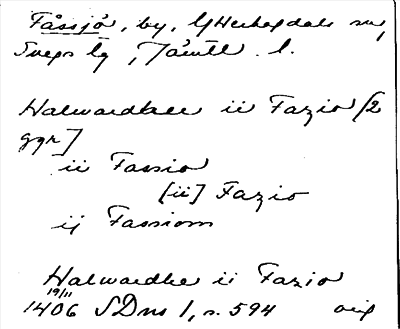 Fåssjö, by, Y Herhogdals sn,
Svegs tg, Jämtl. l.
Halwardhee ii Fazio [2
ggr]
ii Fassio
[ii] Fazio
ij Fassiom
Halwardhe ii Fazio
19/11
1406 SDns 1, s. 594 orig